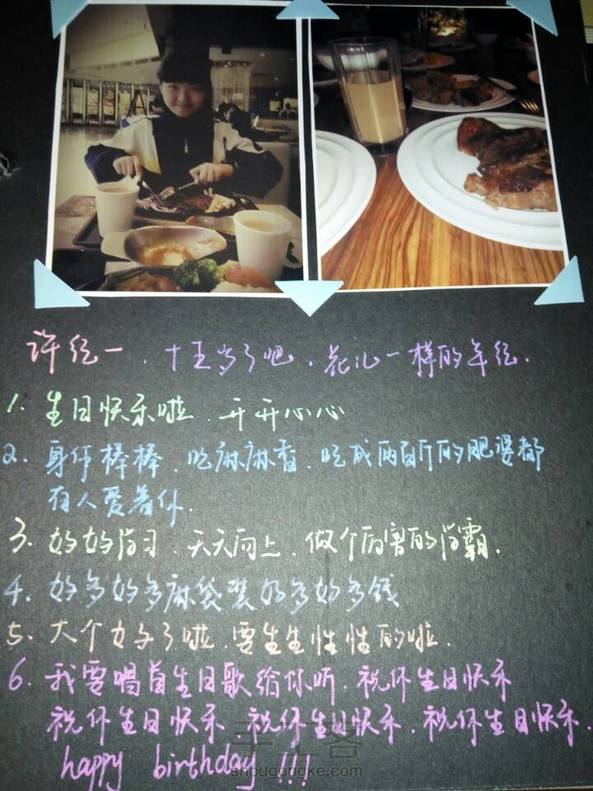 许纪一、十五岁了吧、花儿一样的年纪.
1. 生日快乐啦、开开心心
2. 身体棒棒、吃嘛嘛香、吃成两百斤的肥婆都
有人爱着你.
3. 好好学习、天天向上、做个厉害的学霸.
4. 好多好多麻袋装好多好多钱
5. 大个女了啦、要生生性性的啦.
6. 我要唱首生日歌给你听、祝你生日快乐
祝你生日快乐、祝你生日快乐、祝你生日快乐.
happy birthday !!!
shougongke.com